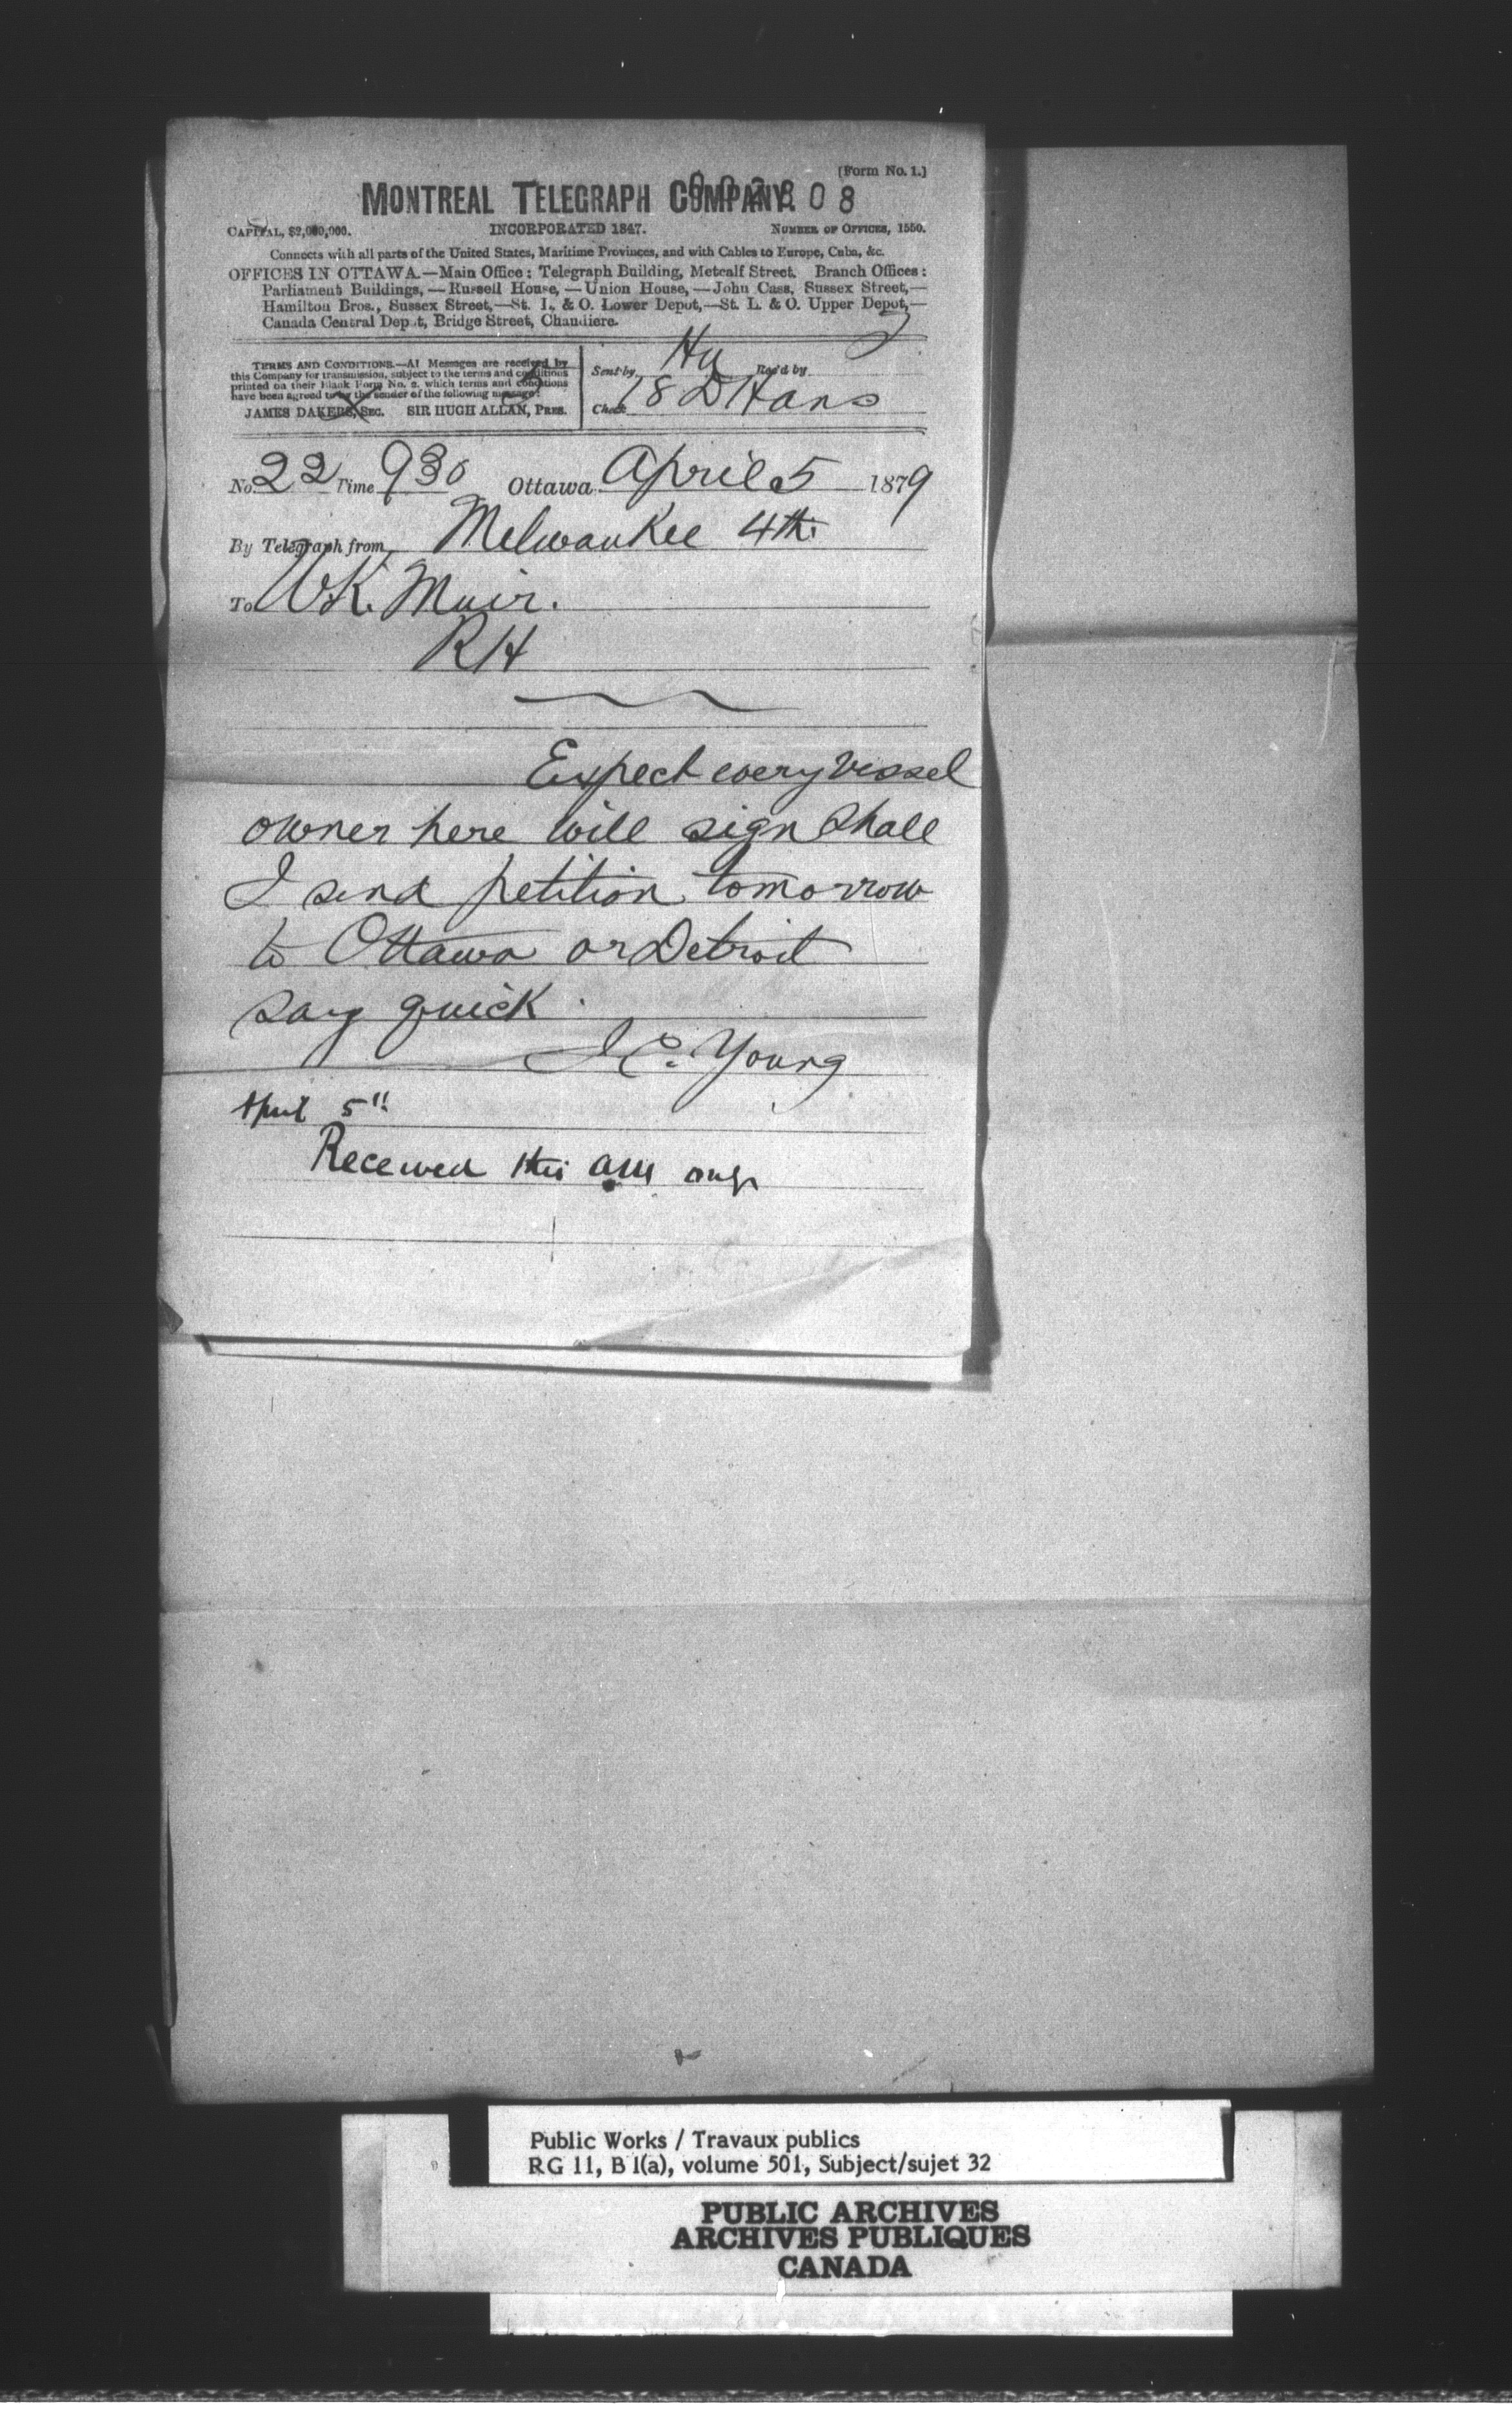 (Form No. 1.)
MONTREAL TELEGRAPH COMPANY.
CAPITAL, $2,000,000. INCORPORATED 1847. NUMBER OF OFFICES, 1550.
Connects with all parts of the United States, Maritime Provinces, and with Cables to Europe, Cuba, &c.
OFFICES IN OTTAWA.—Main Office: Telegraph Building, Metcalf Street. Branch Offices:
Parliament Buildings,—Russell House,—Union House,—John Cass, Sussex Street,—
Hamilton Bros., Sussex Street,—St. L. & O. Lower Depot,—St. L. & O. Upper Depot,—
Canada Central Depot, Bridge Street, Chaudiere.
TERMS AND CONDITIONS.—All Messages are received by
this Company for transmission, subject to the terms and conditions
printed on their Blank Form No. 2, which terms and conditions
have been agreed to by the sender of the following message.
JAMES DAKERS, SEC. SIR HUGH ALLAN, PRES.
Sent by Rec'd by
Check 18 DH
No. 22 Time 930 Ottawa April 5 1879
By Telegraph from Melwaukee 4th
To W.K. Muir.
RH
Expect every vessel
owner here will sign shall
I send petition tomorrow
to Ottawa or Detroit
say quick.
Young
April 5th
Received this am
Public Works / Travaux publics
RG 11, B 1(a), volume 501, Subject/sujet 32
PUBLIC ARCHIVES
ARCHIVES PUBLIQUES
CANADA